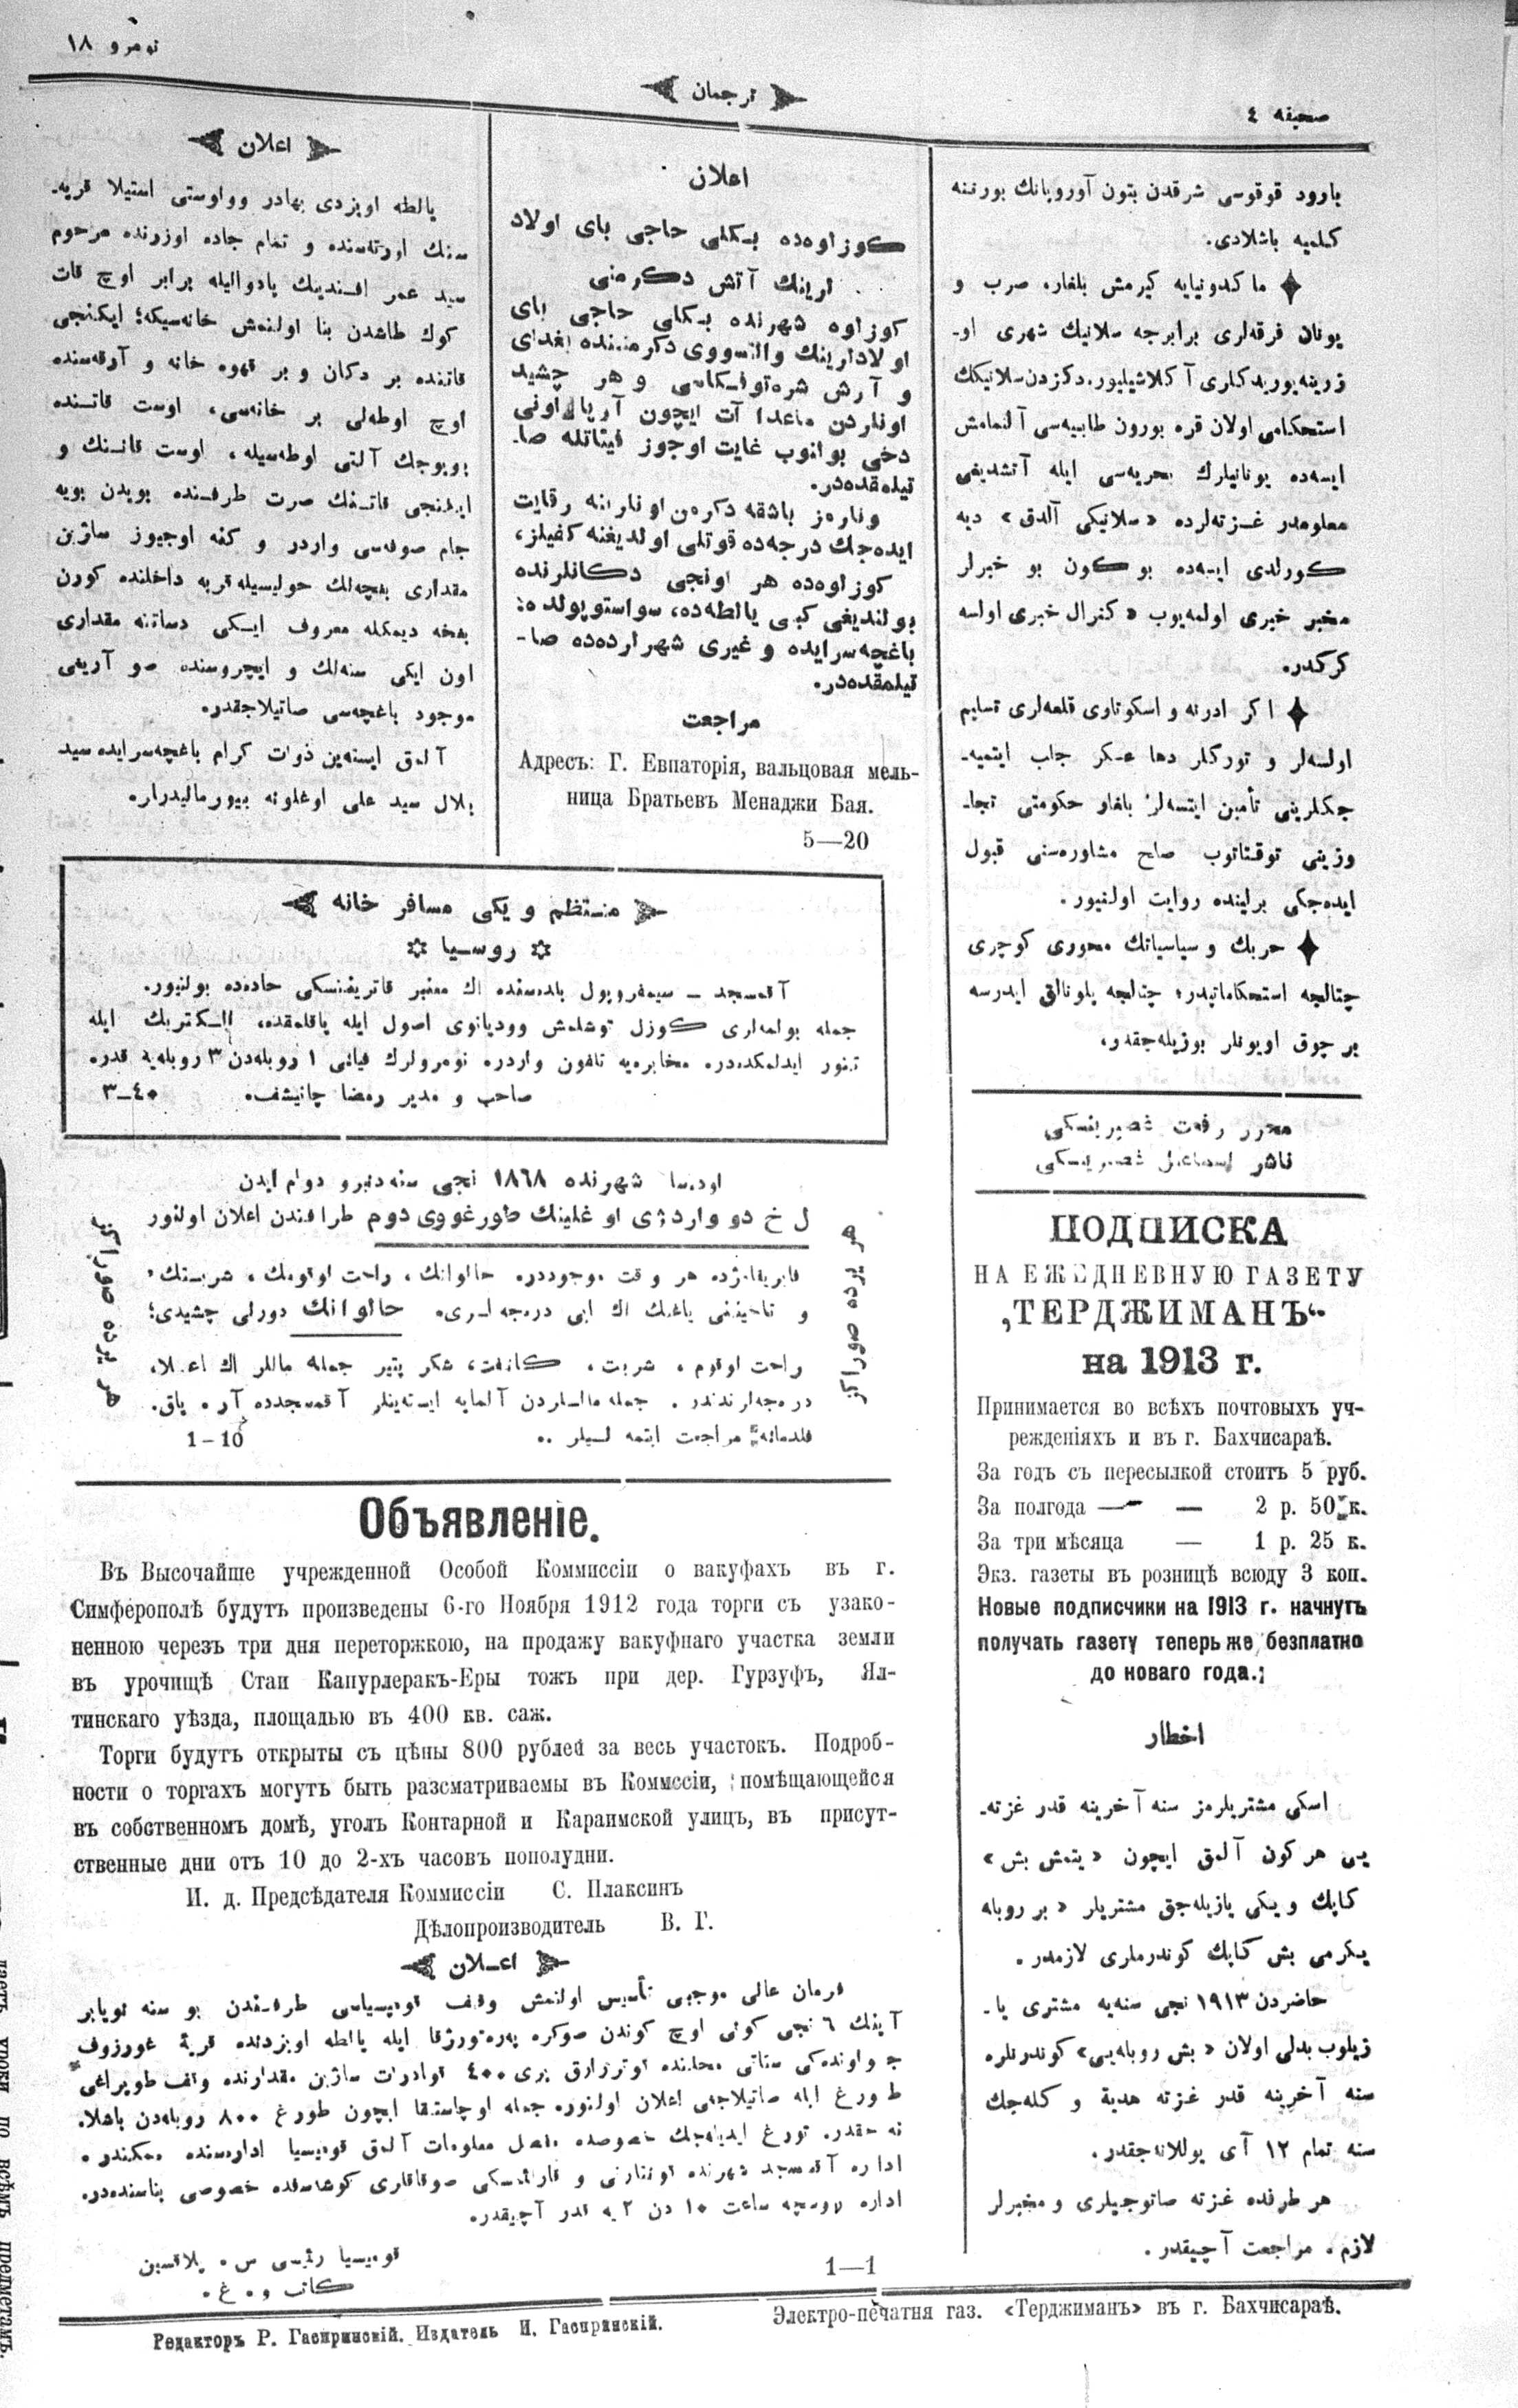 نومرو ١٨
ترجمان
صحیفه ٤
بارود قوقوسی شرقدن بتون آوروپانك بورننه
كلمیه باشلادی.
ماكدونیایه كیرمش بلغار، صرب و
یونان فرقه‌لری برابرجه سلانیك شهری او-
زرینه یوریدكلری آكلاشیلیور. دكزدن سلانیكك
استحكامی اولان قره بورون طابیه‌سی آلنمامش
ایسه‌ده یونانیلرك بحریه‌سی ایله آتشدیغی
معلومدر غزته‌لرده «سلانیكی آلدق» دیه
كورلدی ایسه‌ده بو كون بو خبرلر
مخبر خبری اولمه‌یوب «كنرال خبری اولسه
كركدر.
اكر ادرنه و اسكوتاری قلعه‌لری تسلیم
اولسه‌لر و توركلر دها عسكر جلب ایتمیه-
جكلرینی تأمین ایتسه‌لر بلغار حكومتی تجا-
وزینی توقتاتوب صلح مشاوره‌سنی قبول
ایده‌جكی برلینده روایت اولنیور.
حربك و سیاسیاتك محوری كوچری
چتالجه استحكاماتیدر؛ چتالجه پلونالق ایدرسه
بر چوق اویونلر بوزیله‌جقدر.
محرر رفعت غصپرینسكی
ناشر اسماعیل غصپرینسكی
ПОДПИСКА
НА ЕЖЕДНЕВНУЮ ГАЗЕТУ
„ТЕРДЖИМАНЪ“
на 1913 г.
Принимается во всѣхъ почтовыхъ уч-
режденіяхъ и въ г. Бахчисараѣ.
За годъ съ пересылкой стоитъ 5 руб.
За полгода — — 2 р. 50 к.
За три мѣсяца — 1 р. 25 к.
Экз. газеты въ розницѣ всюду 3 коп.
Новые подписчики на 1913 г. начнутъ
получать газету теперь же безплатно
до новаго года.
اخطار
اسكی مشتریلرمز سنه آخرینه قدر غزته-
یی هر كون آلمق ایچون «یتمش بش»
كاپك و یكی یازیله‌جق مشتریلر «بر روبله
یكرمی بش كاپك كوندرملری لازمدر.
حاضردن ١٩١٣ نجی سنه‌یه مشتری یا-
زیلوب بدلی اولان «بش روبله‌یی» كوندرنلره
سنه آخرینه قدر غزته هدیة و كله‌جك
سنه تمام ١٢ آی یوللانه‌جقدر.
هر طرفده غزته صاتوجیلری و مخبرلر
لازم. مراجعت آچیقدر.
اعلان
كوزلوه‌ده بـكلی حاجی بای اولاد
لرینك آتش دكرمنی
كوزلوه شهرنده بـكلی حاجی بای
اولادلرینك والتسووی دكرمننده بغدای
و آرش و هر چشید
اونلردن ماعدا آت ایچون آرپا اونی
دخی بولنوب غایت اوجوز فیئاتله صا-
تیلمقده‌در.
اونلرمز باشقه دكرمن اونلرینه رقابت
ایده‌جك درجه‌ده قوتلی اولدیغنه كفیلز،
كوزلوه‌ده هر اونجی دكانلرنده
بولندیغی كبی یالطه‌ده، سواستوپولده،
باغچه‌سرایده و غیری شهرلرده‌ده صا-
تیلمقده‌در.
مراجعت
Адресъ: Г. Евпаторія, вальцовая мель-
ница Братьевъ Менаджи Бая.
5—20
اعلان
یالطه اویزدی بهادر وولوستی استیلا قریه-
سنك اورته‌سنده و تمام جاده اوزرنده مرحوم
سید عمر افندینك پادوالیله برابر اوچ قات
كوك طاشدن بنا اولنمش خانه‌سیكه؛ ایكنجی
قاتنده بر دكان و بر قهوه خانه و آرقه‌سنده
اوچ اوطه‌لی بر خانه‌سی، اوست قاتنده
بویوجك آلتی اوطه‌سیله، اوست قاتنك و
ایكنجی قاتنك صرت طرفنده بویدن بویه
جام صوفه‌سی واردر و كنه اوچیوز ساژین
مقداری بغچه‌لك حولیسیله قریه داخلنده كورن
بغچه دیمكله معروف ایـكی دساتنه مقداری
اون ایكی سنه‌لك و ایچروسنده صو آریغی
موجود باغچه‌سی صاتیلاجقدر.
آلمق ایسته‌ین ذوات كرام باغچه‌سرایده سید
بلال سید علی اوغلونه بیورمالیدرلر.
منـتظم و یكی مسافر خانه
روسـیا
آقمسجد — سیمفروپول بلده‌سنده اك معتبر قاتریننسكی جاده‌ده بولنیور.
جمله بولمه‌لری كوزل توشلمش وودیانوی اصول ایله یاقلمقده، الـكتریك ایله
تنور ایدلمكده‌در. مخابره‌یه تلفون واردر. نومرولرك فیاتی ١ روبله‌دن ٣ روبله‌یه قدر.
صاحب و مدیر رمضا چانیشف. ٤٠–٣
اودیسا شهرنده ١٨٦٨ نجی سنه‌دنبرو دوام ایدن
ل خ دوواردژی اوغلینك طورغووی دوم طرافندن اعلان اولنور
هر یرده صوراكز
هر یرده صوراكز
فابریقامزده هر وقت موجوددر. حالوانك، راحت لوقومك، شربتنك،
و تاحیننی یاغنك اك ایی درجه‌لـری. حالوانك دورلی چشیدی؛
راحت لوقوم، شربت، كانفت، شكر پنیر جمله ماللر اك اعـلا،
درجه‌لرندندر. جمله ماللردن آلمایه ایسته‌ینلر آقمسجدده
مراجعت ایتمه‌لـیلر..
1–10
Объявленіе.
Въ Высочайше учрежденной Особой Коммиссіи о вакуфахъ въ г.
Симферополѣ будутъ произведены 6-го Ноября 1912 года торги съ узако-
ненною черезъ три дня переторжкою, на продажу вакуфнаго участка земли
въ урочищѣ Стаи Капурлеракъ-Еры тожъ при дер. Гурзуфъ, Ял-
тинскаго уѣзда, площадью въ 400 кв. саж.
Торги будутъ открыты съ цѣны 800 рублей за весь участокъ. Подроб-
ности о торгахъ могутъ быть разсматриваемы въ Коммссіи, помѣщающейся
въ собственномъ домѣ, уголъ Контарной и Караимской улицъ, въ присут-
ственные дни отъ 10 до 2-хъ часовъ пополудни.
И. д. Предсѣдателя Коммиссіи С. Плаксинъ
Дѣлопроизводитель В. Г.
اعـلان
فرمان عالی موجبی تأسیس اولنمش وقف قومیسیاسی طرفـندن بو سنه نویابر
آینك ٦ نجی كونی اوچ كوندن صوكره په‌ره‌تورژقا ایله یالطه اویزدنده قریۀ غورزوف
جواونده‌كی محلنده یری ٤٠٠ قوادرات ساژین مقدارنده وقف طوپراغی
طورغ ایله صاتیلاجغی اعلان اولنور. جمله ایچون طورغ ٨٠٠ روبله‌دن باشلا-
نه‌جقدر. تورغ ایدیله‌جك خصوصده مفصل معلومات آلمق قومیسیا اداره‌سنده ممكندر.
اداره آقمسجد شهرنده قونتارنی و قارائمسكی صوقاقلری كوشه‌سنده خصوصی بناسنده‌در.
اداره روسچه ساعت ١٠ دن ٢ یه قدر آچیقدر.
قومیسیا رئیسی س. پلاقسین
كاتب و. غ.
1—1
Редакторъ Р. Гаспринскій. Издатель И. Гаспринскій.
Электро-печатня газ. «Терджиманъ» въ г. Бахчисараѣ.